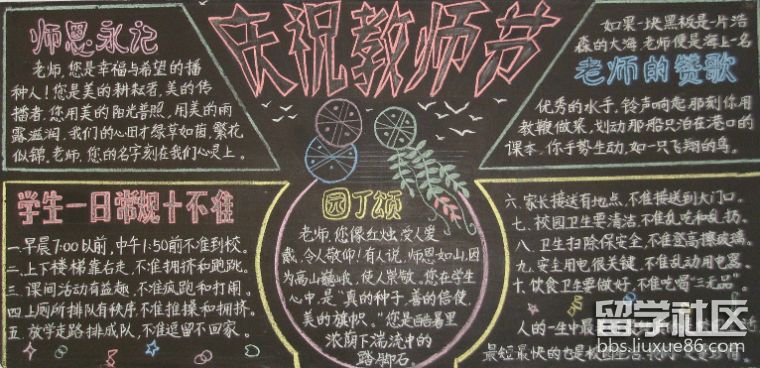 庆祝教师节
师恩永记
老师,您是幸福与希望的播
种人!您是美的耕耘者,美的传
播者,您用美的阳光普照,用美的雨
露滋润,我们的心田才绿草如茵,繁花
似锦,老师,您的名字刻在我们心灵上。
如果一块黑板是一片浩
淼的大海,老师便是海上一名
老师的赞歌
优秀的水手,铃声响起那刻你用
教鞭做桨,划动那船只泊在港口的
课本,你手势生动,如一只飞翔的鸟。
学生一日常规十不准
一.早晨7:00以前,中午1:50前不准到校。
二.上下楼梯靠右走,不准拥挤和跑跳。
三.课间活动有益趣,不准疯跑和打闹。
四.上厕所排队有秩序,不准推操和拥挤。
五.放学走路排成队,不准逗留不回家。
园丁颂
老师,您像红烛,受人爱
戴,令人敬仰!有人说,师恩如山,因
为高山巍峨,使人崇敬。您在学生
心中,是“真的种子,善的信使,
美的旗帜。”您是酷暑里
浓荫下湍流中的
踏脚石。
六.家长接送有地点,不准接送到大门口。
七.校园卫生要清洁,不准乱吃和乱扔。
八.卫生扫除保安全,不准登高擦玻璃。
九.安全用电很关键,不准乱动用电器。
十.饮食卫生要做好,不准吃喝“三无品”。
人的一生中最
最短最快的也是校园生活
留学社区
bbs.liuxue86.com